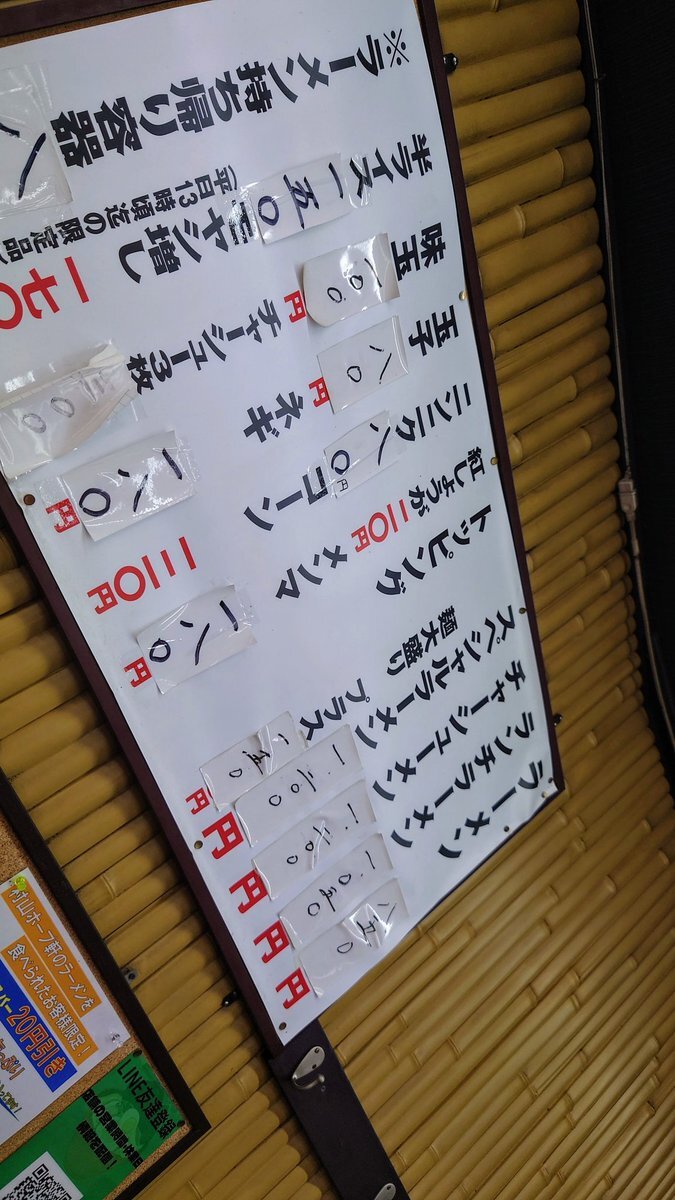 ラーメン 八五〇円
ランチラーメン 一.〇五〇円
チャーシューメン 円
スペシャルラーメン 一.二〇〇円
麺大盛り プラス 一五〇円
トッピング
メンマ 一八〇円
紅しょうが 二〇円
コーン 一二〇円
ニンニク 八〇円
ネギ 一八〇円
玉子 八〇円
チャーシュー3枚 〇〇
味玉 一〇〇円
モヤシ増し 一七〇
半ライス 一五〇
(平日13時頃迄の限定品)
※ラーメン持ち帰り容器
村山ホープ軒のラーメンを
食べられたお客様限定!
20円引き
LINE友達登録